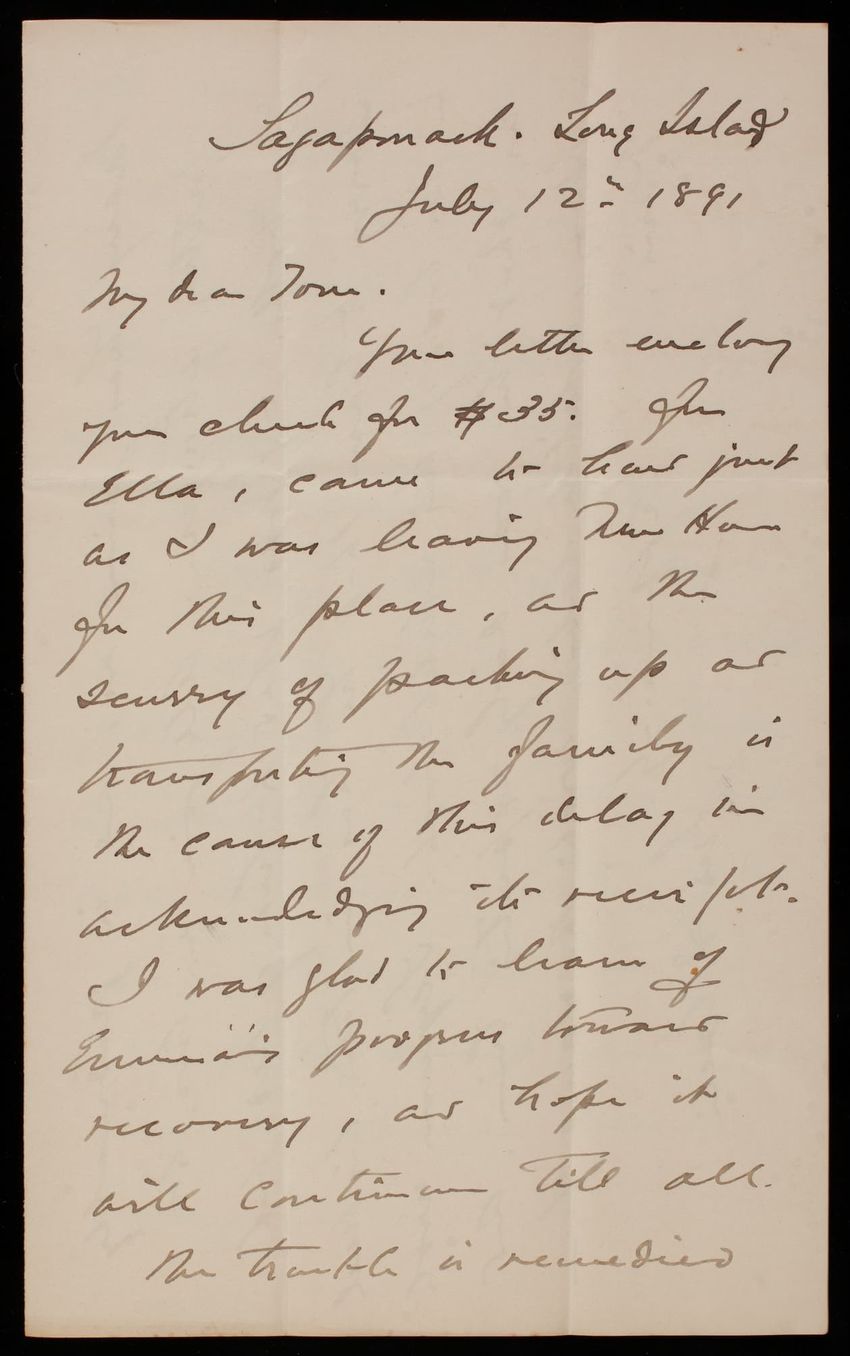 Sagaponack. Long Island
July 12th 1891
My dear Tom.
Your letter enclosing
your check for $35. for
Ella, came to hand just
as I was leaving New Haven
for this place, and the
scurry of packing up and
transporting the family is
the cause of this delay in
acknowledging its receipt.
I was glad to learn of
Emma's progress toward
recovery, and hope it
will continue till all
the trouble is remedied